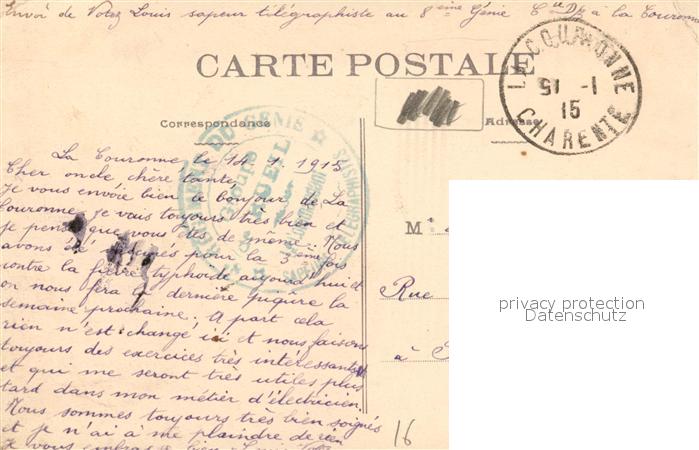 Envoi de Votez Louis sapeur télégraphiste au 8ème Génie Cie D4 à la Couronne
CARTE POSTALE
LA COURONNE
-1
15
CHARENTE
Correspondance
Adresse
GÉNIE
RUEIL
La Couronne, le 14.1.1915
Cher oncle chère tante,
Je vous envoie bien le bonjour de La
Couronne, je vais toujours très bien et
je pense que vous êtes de même. Nous
avons été vaccinés pour la 3ème fois
contre la fièvre typhoïde aujourd'hui et
on nous fera la dernière piqûre la
semaine prochaine; A part cela
rien n'est changé ici et nous faisons
toujours des exercices très intéressants
et qui me seront très utiles plus
tard dans mon métier d'électricien.
Nous sommes toujours très bien soignés
et je n'ai à me plaindre de rien
Je vous embrasse bien Louis
M
Rue
à
16
privacy protection
Datenschutz